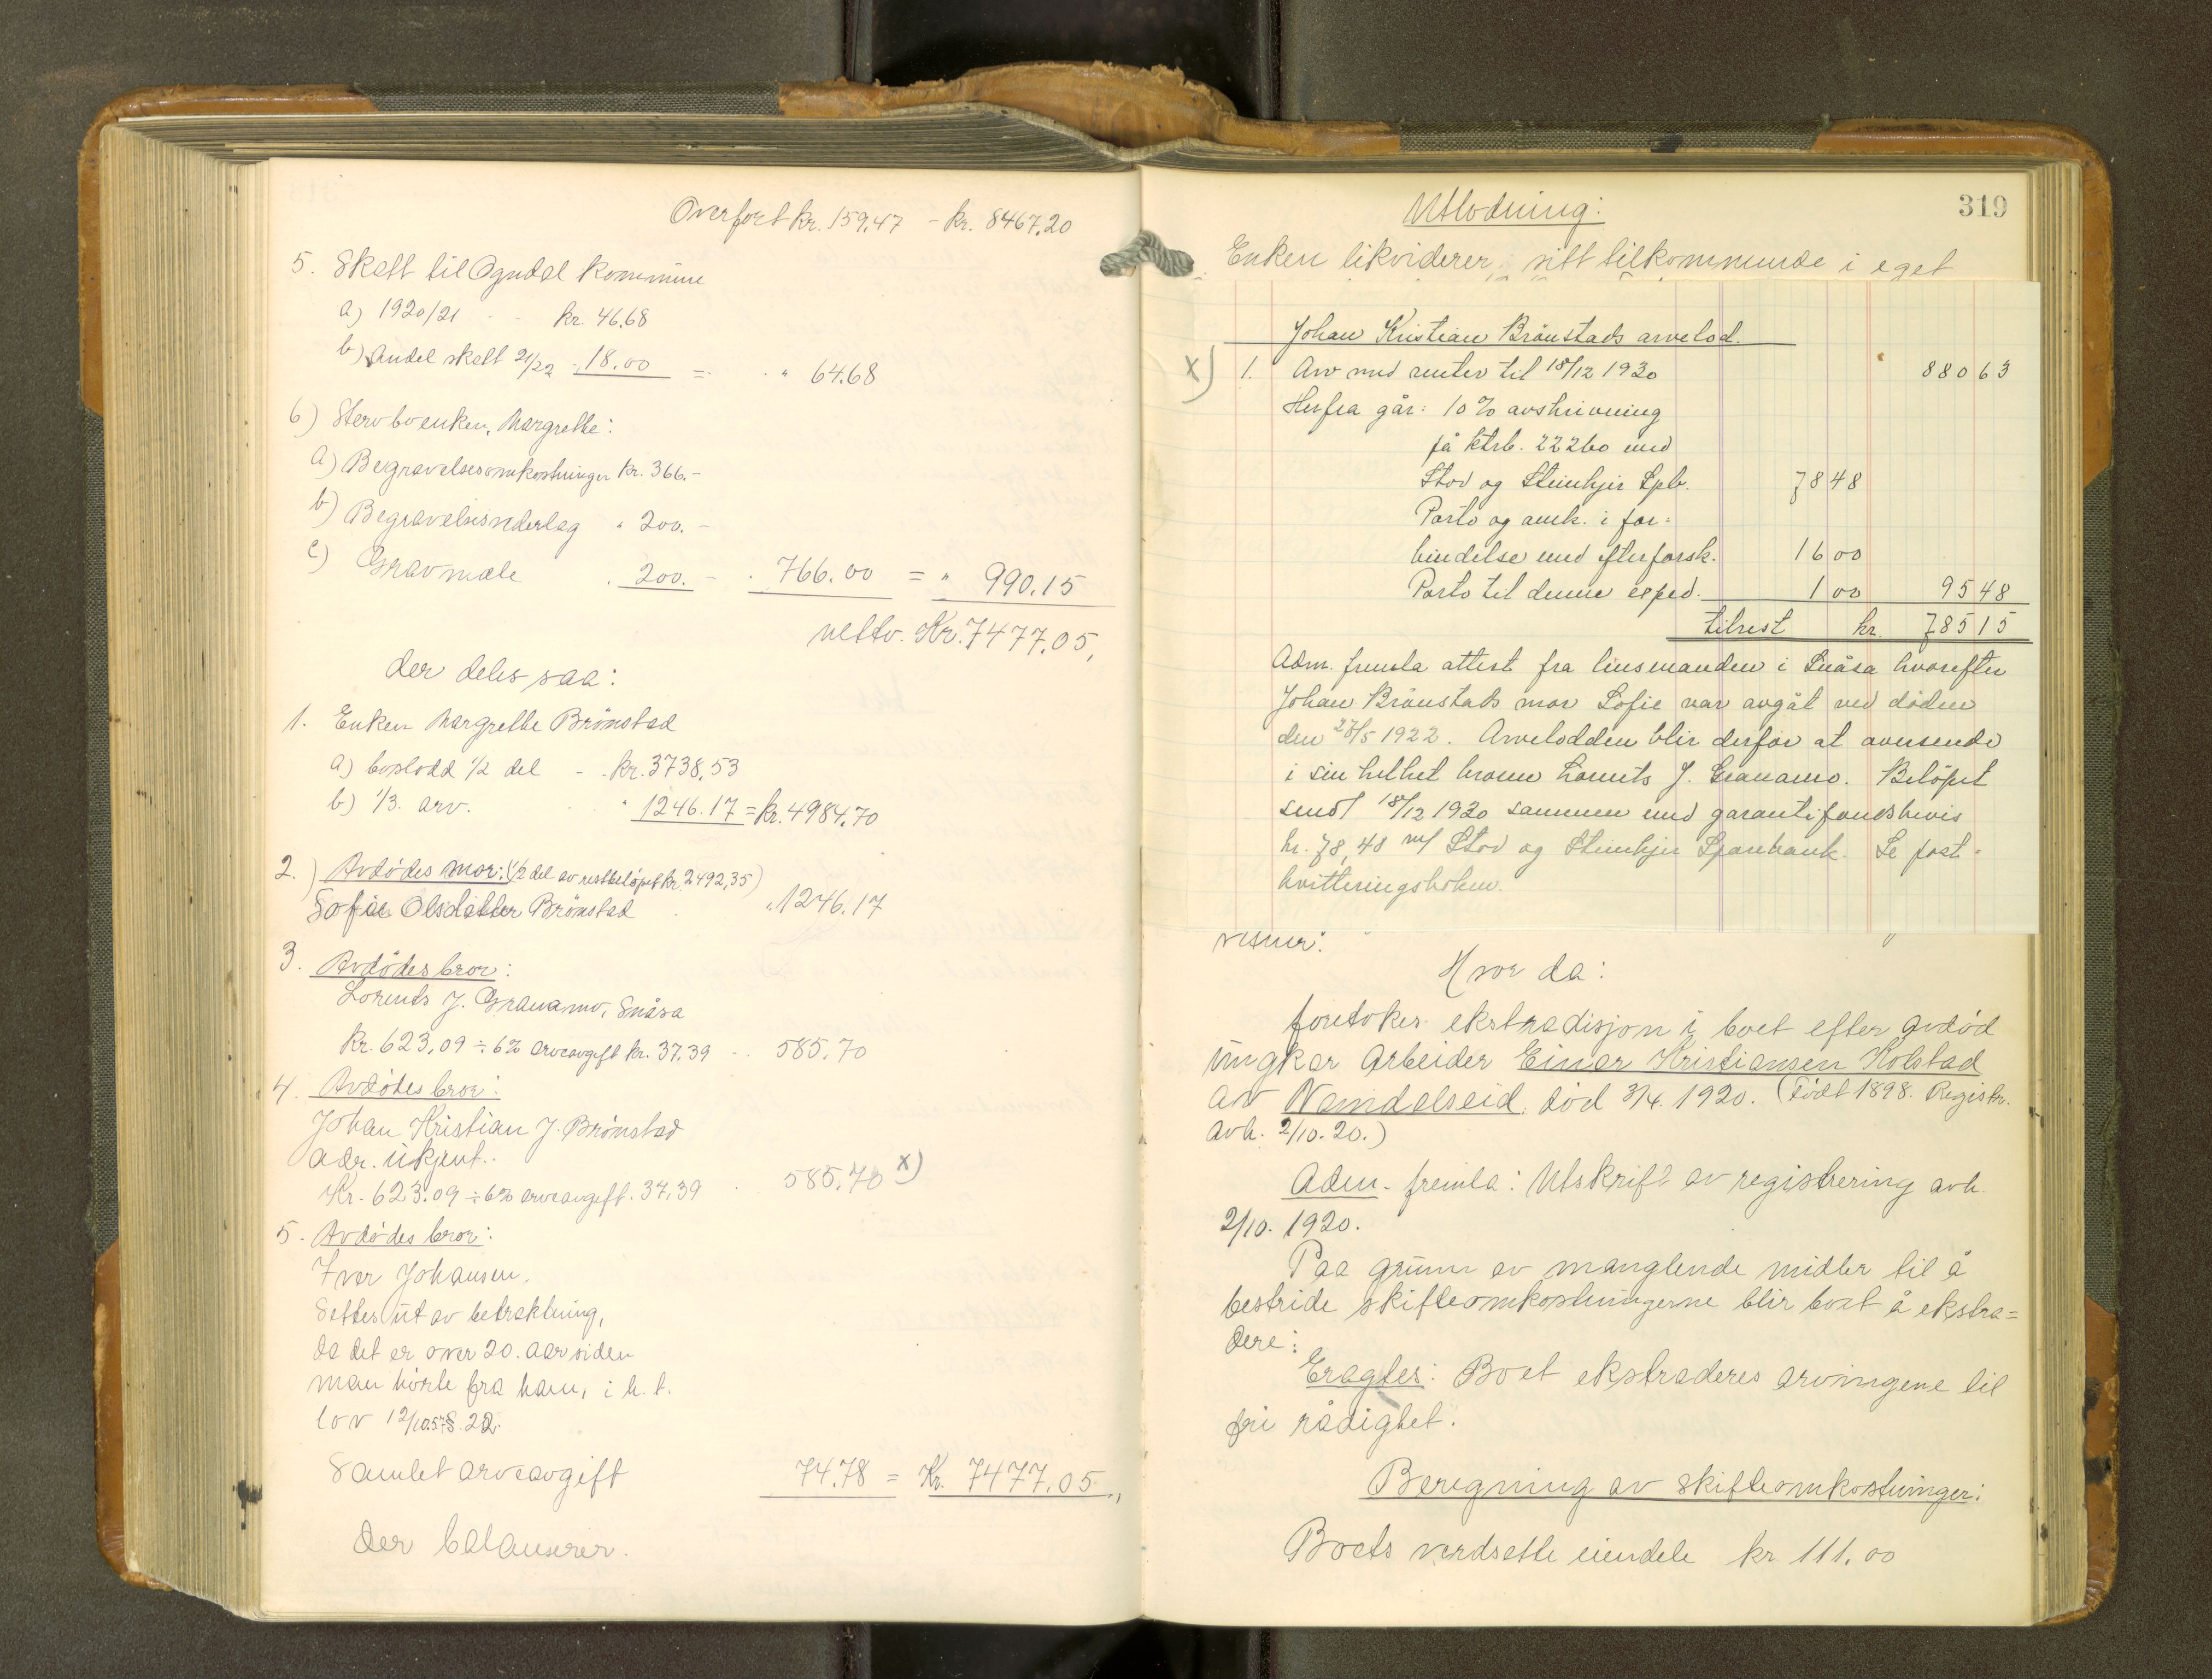 Overført kr. 159.47 – kr. 8467.20
5. Skatt til Ogndal kommune
a) 1920/21 - - kr. 46.68
b) Andel skatt 21/22 - 18.00 = - " 64.68
6) Stervboenken, Margrethe:
a) Begravelsesomkostninger kr. 366.-
b) Begravelsesderlag " 200.-
c) Gravmæle . 200. - . 766.00 = " 990.15
netto. Kr. 7477.05,
der deles saa:
1. Enken Margrethe Brønstad
a) boslodd 1/2 del - . kr. 3738.53
b) 1/3. arv. . " 1246.17 = kr. 4984.70
2.) Avdødes mor: (1/2 del av restbeløpet kr. 2492,35)
Sofie Olsdatter Brønstad . " 1246.17
3. Avdødes bror:
Lorents J. Granamo, Snåsa
Kr. 623.09 ÷ 6% arveavgift kr. 37.39 - . 585.70
4. Avdødes bror:
Johan Kristian J. Brønstad
adr. ukjent..
Kr. 623.09 ÷ 6% arveavgift. 37.39 . 585.70 x)
5. Avdødes bror:
Iver Johansen.
Settes ut av betraktning,
da det er over 20. aar siden
man hørte fra ham, i h. t.
lov 12/10.57 §. 22.
Samlet arveavgift 74.78 = Kr. 7477.05.,
Der balanserer.
319
Utlodning:
Enken likviderer, sitt tilkommende i eget
Johan Kristian Brønstads arvelod.
x) 1. Arv med renter til 18/12 1930 880 63
Herfra går: 10% avskrivning
på ktrb. 22260 med
Stod og Steinkjer Spb. 78 48
Porto og omk. i for=
bindelse med efterforsk. 16 00
Porto til denne exped. 1 00 95 48
tilrest kr. 785 15
Adm. fremla attest fra lensmanden i Snåsa hvorefter
Johan Brønstads mor Sofie var avgåt ved døden
den 28/5 1922. Arvelodden blir derfor at oversende
i sin helhet broren Lorents J. Granamo. Beløpet
sendt 18/12 1930 sammen med garantifondsbevis
kr. 78,48 m/ Stod og Steinkjer Sparebank. Se post=
kvitteringsboken.
visner:
Hvor da:
foretokes ekstradisjon i boet efter avdød
ungkar arbeider Einar Kristiansen Holstad
av Namdalseid. død 3/4. 1920. (Født 1898. Registr.
avh. 2/10. 20.)
Adm. fremla: Utskrift av registrering avh.
2/10. 1920.
Paa grunn av manglende midler til å
bestride skifteomkostningerne blir boet å ekstra=
dere:
Eragtes: Boet ekstraderes arvingene til
fri rådighet.
Beregning av skifteomkostninger:
Boets verdsatte eiendele kr 111.00